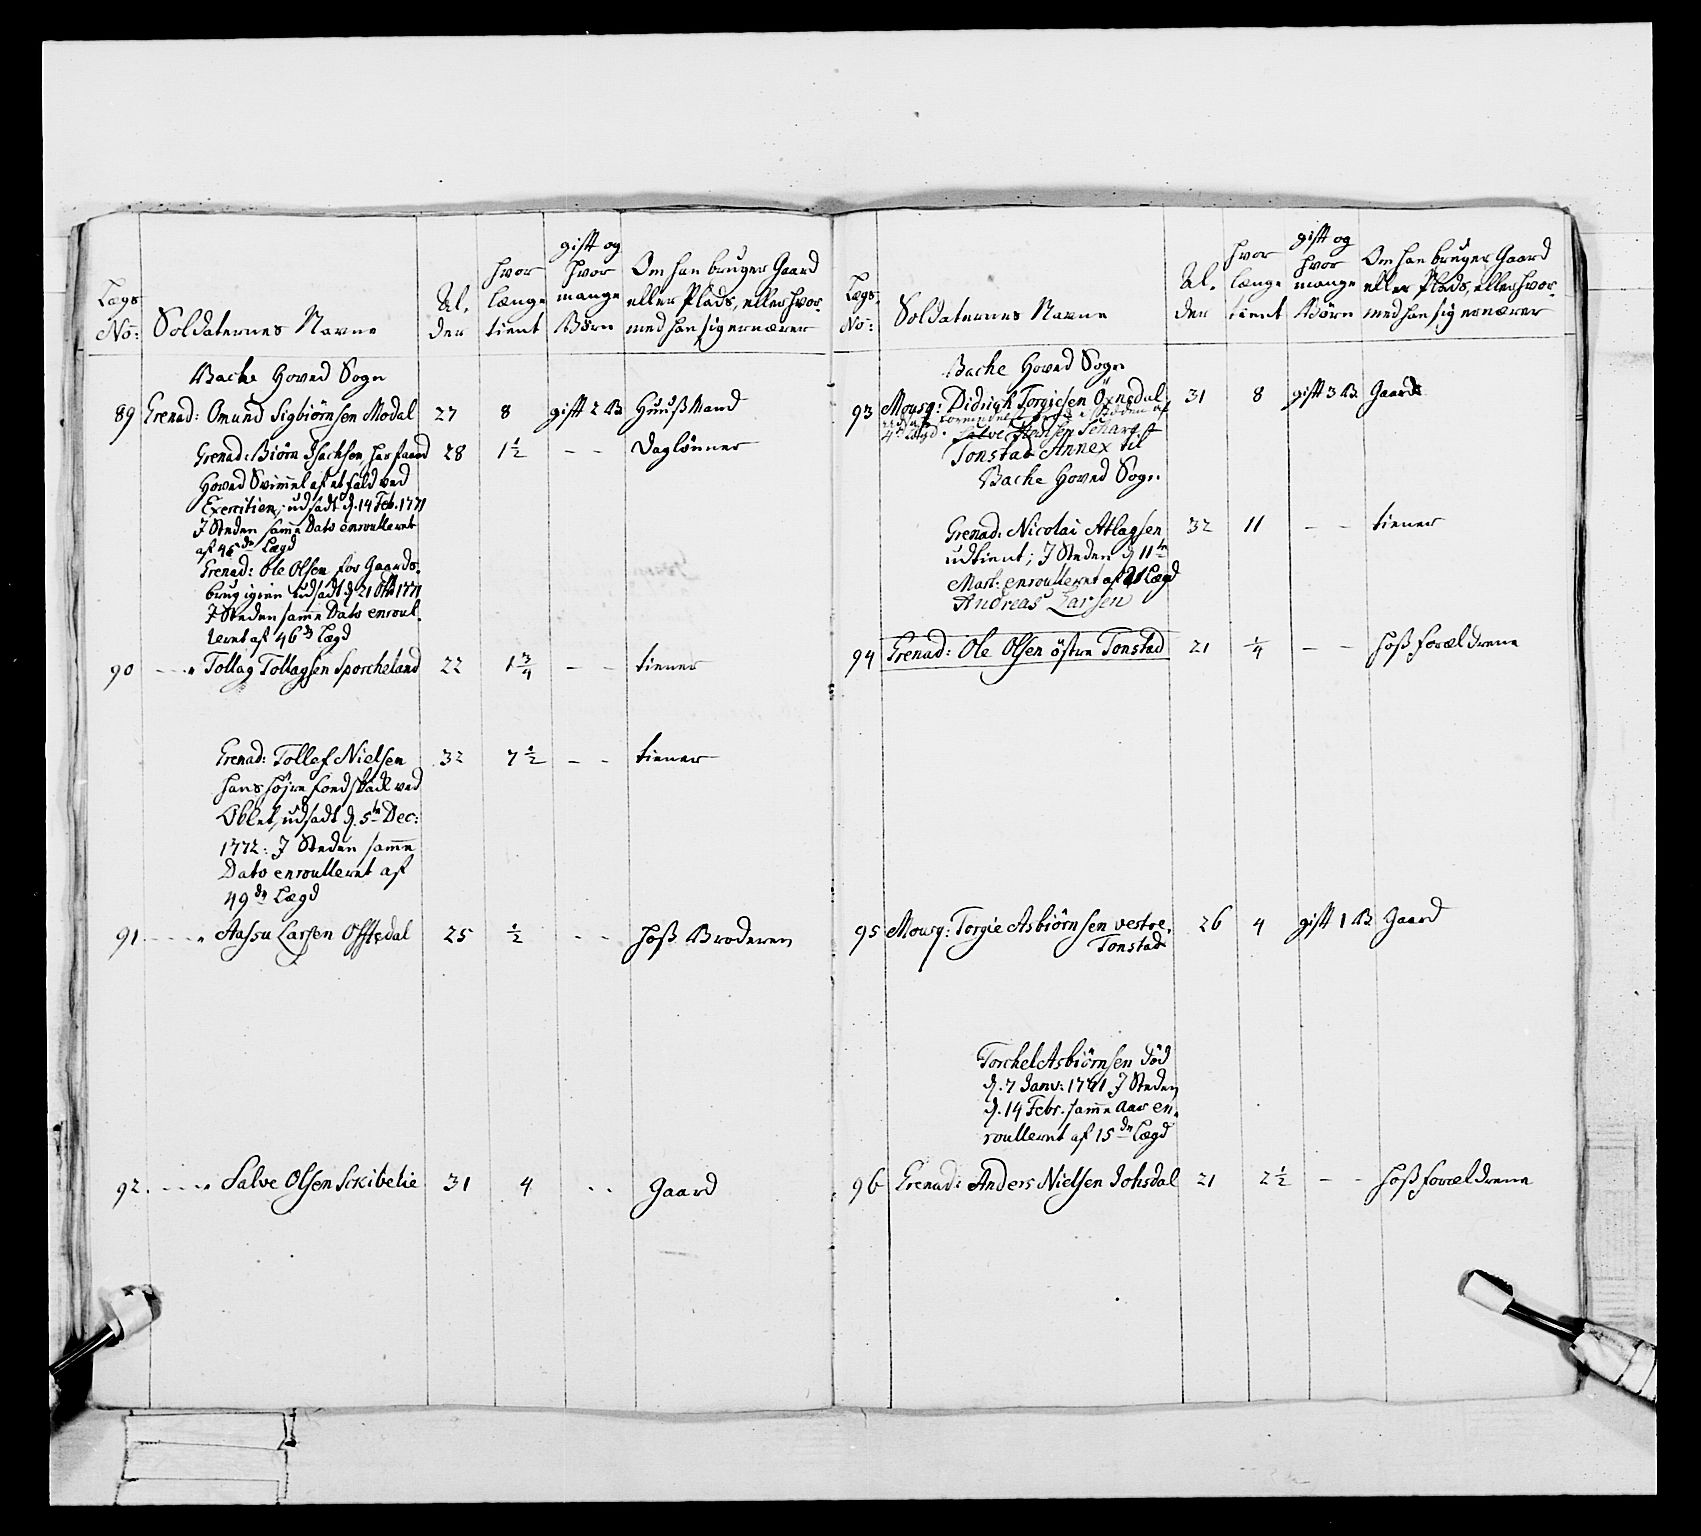 Lægs No: Soldaternes Navne Al- der hvor længe tient gift og hvor mange Børn Om han bruger Gaard eller Plads, eller hvor- med han sig ernærer
Bache Hoved Sogn
89 Grenad: Omund Sigbiörnsen Modal 27 8 gift 2 B Huuß Mand
Grenad: Biørn Isachsen, har faaed 28 1 1/2 - - Daglönner
Hoved Svimmel af et fald ved
Exercitien, udsadt d. 14 Feb. 1771
I Steden samme Dato enroulleret
af 45de Lægd
Grenad: Ole Olsen for Gaards-
brug igien udsadt d. 21
I Steden samme Dato enroul-
leret af 46 Lægd
90 - - " Tollag Tollagsen Sporcheland 22 1 3/4 - - tiener
Grenad: Tollef Nielsen 32 7 1/2 - - tiener
hans höjre
udsadt d. 5te Dec:
1772: I Steden samme
Dato enroulleret af
49de Lægd
91 - - " Aasu Larsen Offtedal 25 1/2 - - hoß Broderen
92 - - " Salve Olsen Sckibelie 31 4 - - Gaard
Lægs No: Soldaternes Navne Al- der hvor længe tient gift og hvor mange Børn Om han bruger Gaard eller Plads, eller hvor- med han sig ernærer
Bache Hoved Sogn
93 Mousq: Didrich Torgiesen Öxnedal 31 8 gift 3 B Gaard
Tonstad Annex til
Bache Hoved Sogn
Grenad: Nicolai Atlagsen 32 11 - - tiener
udtient; I Steden d 11te
Mart: enroulleret af Lægd
Andreas Larsen
94 Grenad: Ole Olsen östre Tonstad 21 1/4 - - hoß forældrene
95 Mousq: Torgie Asbiörnsen vestre 26 4 gift 1 B Gaard
Tonstad
Torchel Asbiörnsen död
d. 7 Janv: 1771 I Steden
d. 14 Febr. samme Aar en-
roulleret af 15de Lægd
96 Grenad: Anders Nielsen Johsdal 21 2 1/2 - - hoß forældrene